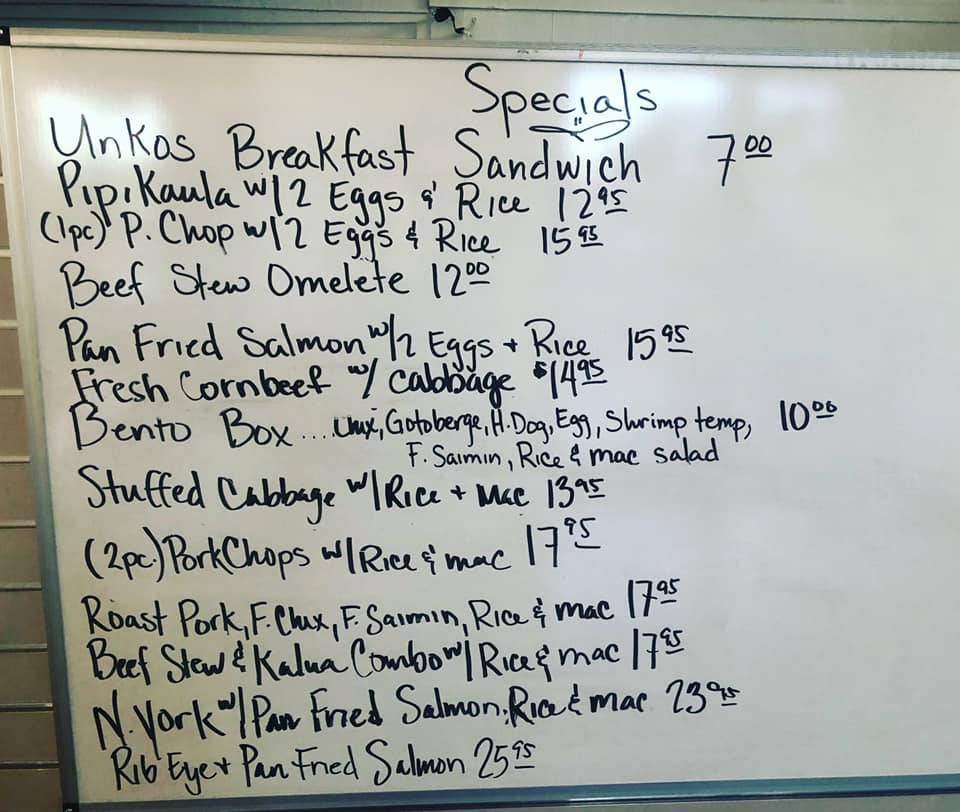 Specials
Unkos Breakfast Sandwich 7.00
Pipikaula w/2 Eggs & Rice 12 95
(1pc) P. Chop w/2 Eggs & Rice 15 95
Beef Stew Omelete 12 00
Pan Fried Salmon w/2 Eggs + Rice 15 95
Fresh Cornbeef w/ cabbage $14 95
Bento Box .... Chux, Gotoberge, H.Dog, Egg, Shrimp temp, 10 00
F. Saimin, Rice & mac salad
Stuffed Cabbage w/Rice + Mac 13 95
(2pc) PorkChops w/Rice & mac 17 95
Roast Pork, F. Chux, F. Saimin, Rice & mac 17 95
Beef Stew & Kalua Combo w/Rice & mac 17 95
N. York w/Pan Fried Salmon, Rice & mac 23 95
Rib Eye + Pan Fried Salmon 25 95